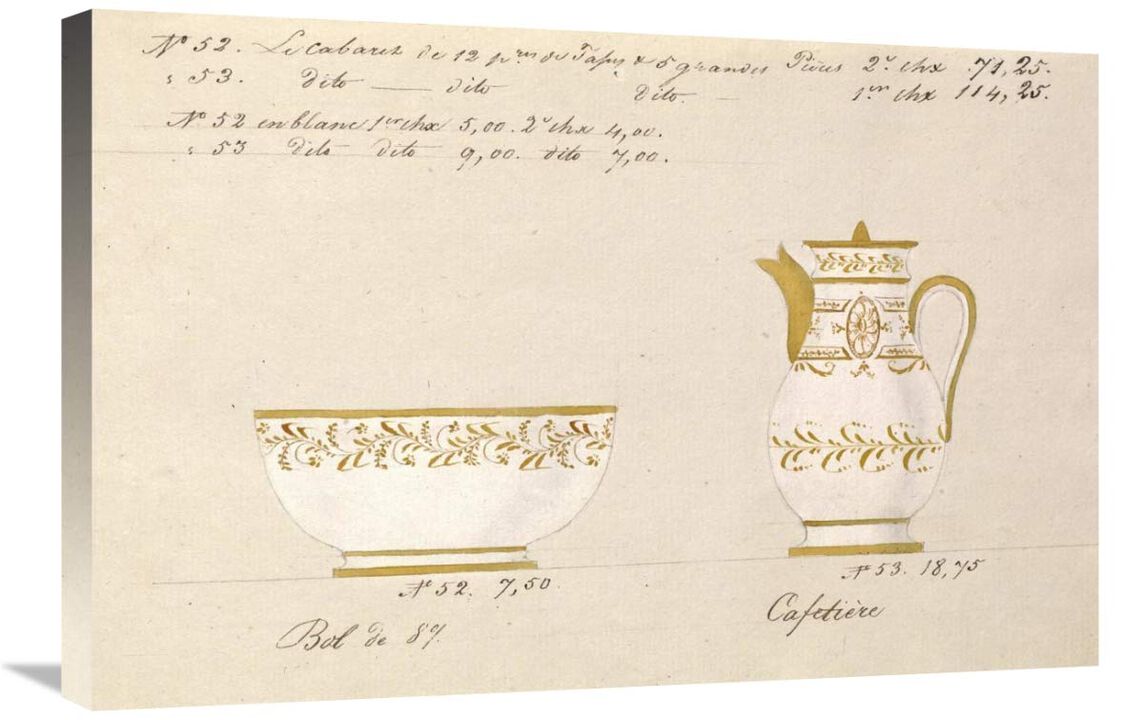 No 52. Le Cabaret de 12 pres de Tasses & 5 grandes Pièces 2d chx 71,25.
" 53. dito — dito dito. — 1er chx 114,25.
No 52 en blanc 1er chx 5,00. 2d chx 4,00.
" 53 dito dito 9,00. dito 7,00.
No 52. 7,50
No 53. 18,75
Bol de
Cafetière